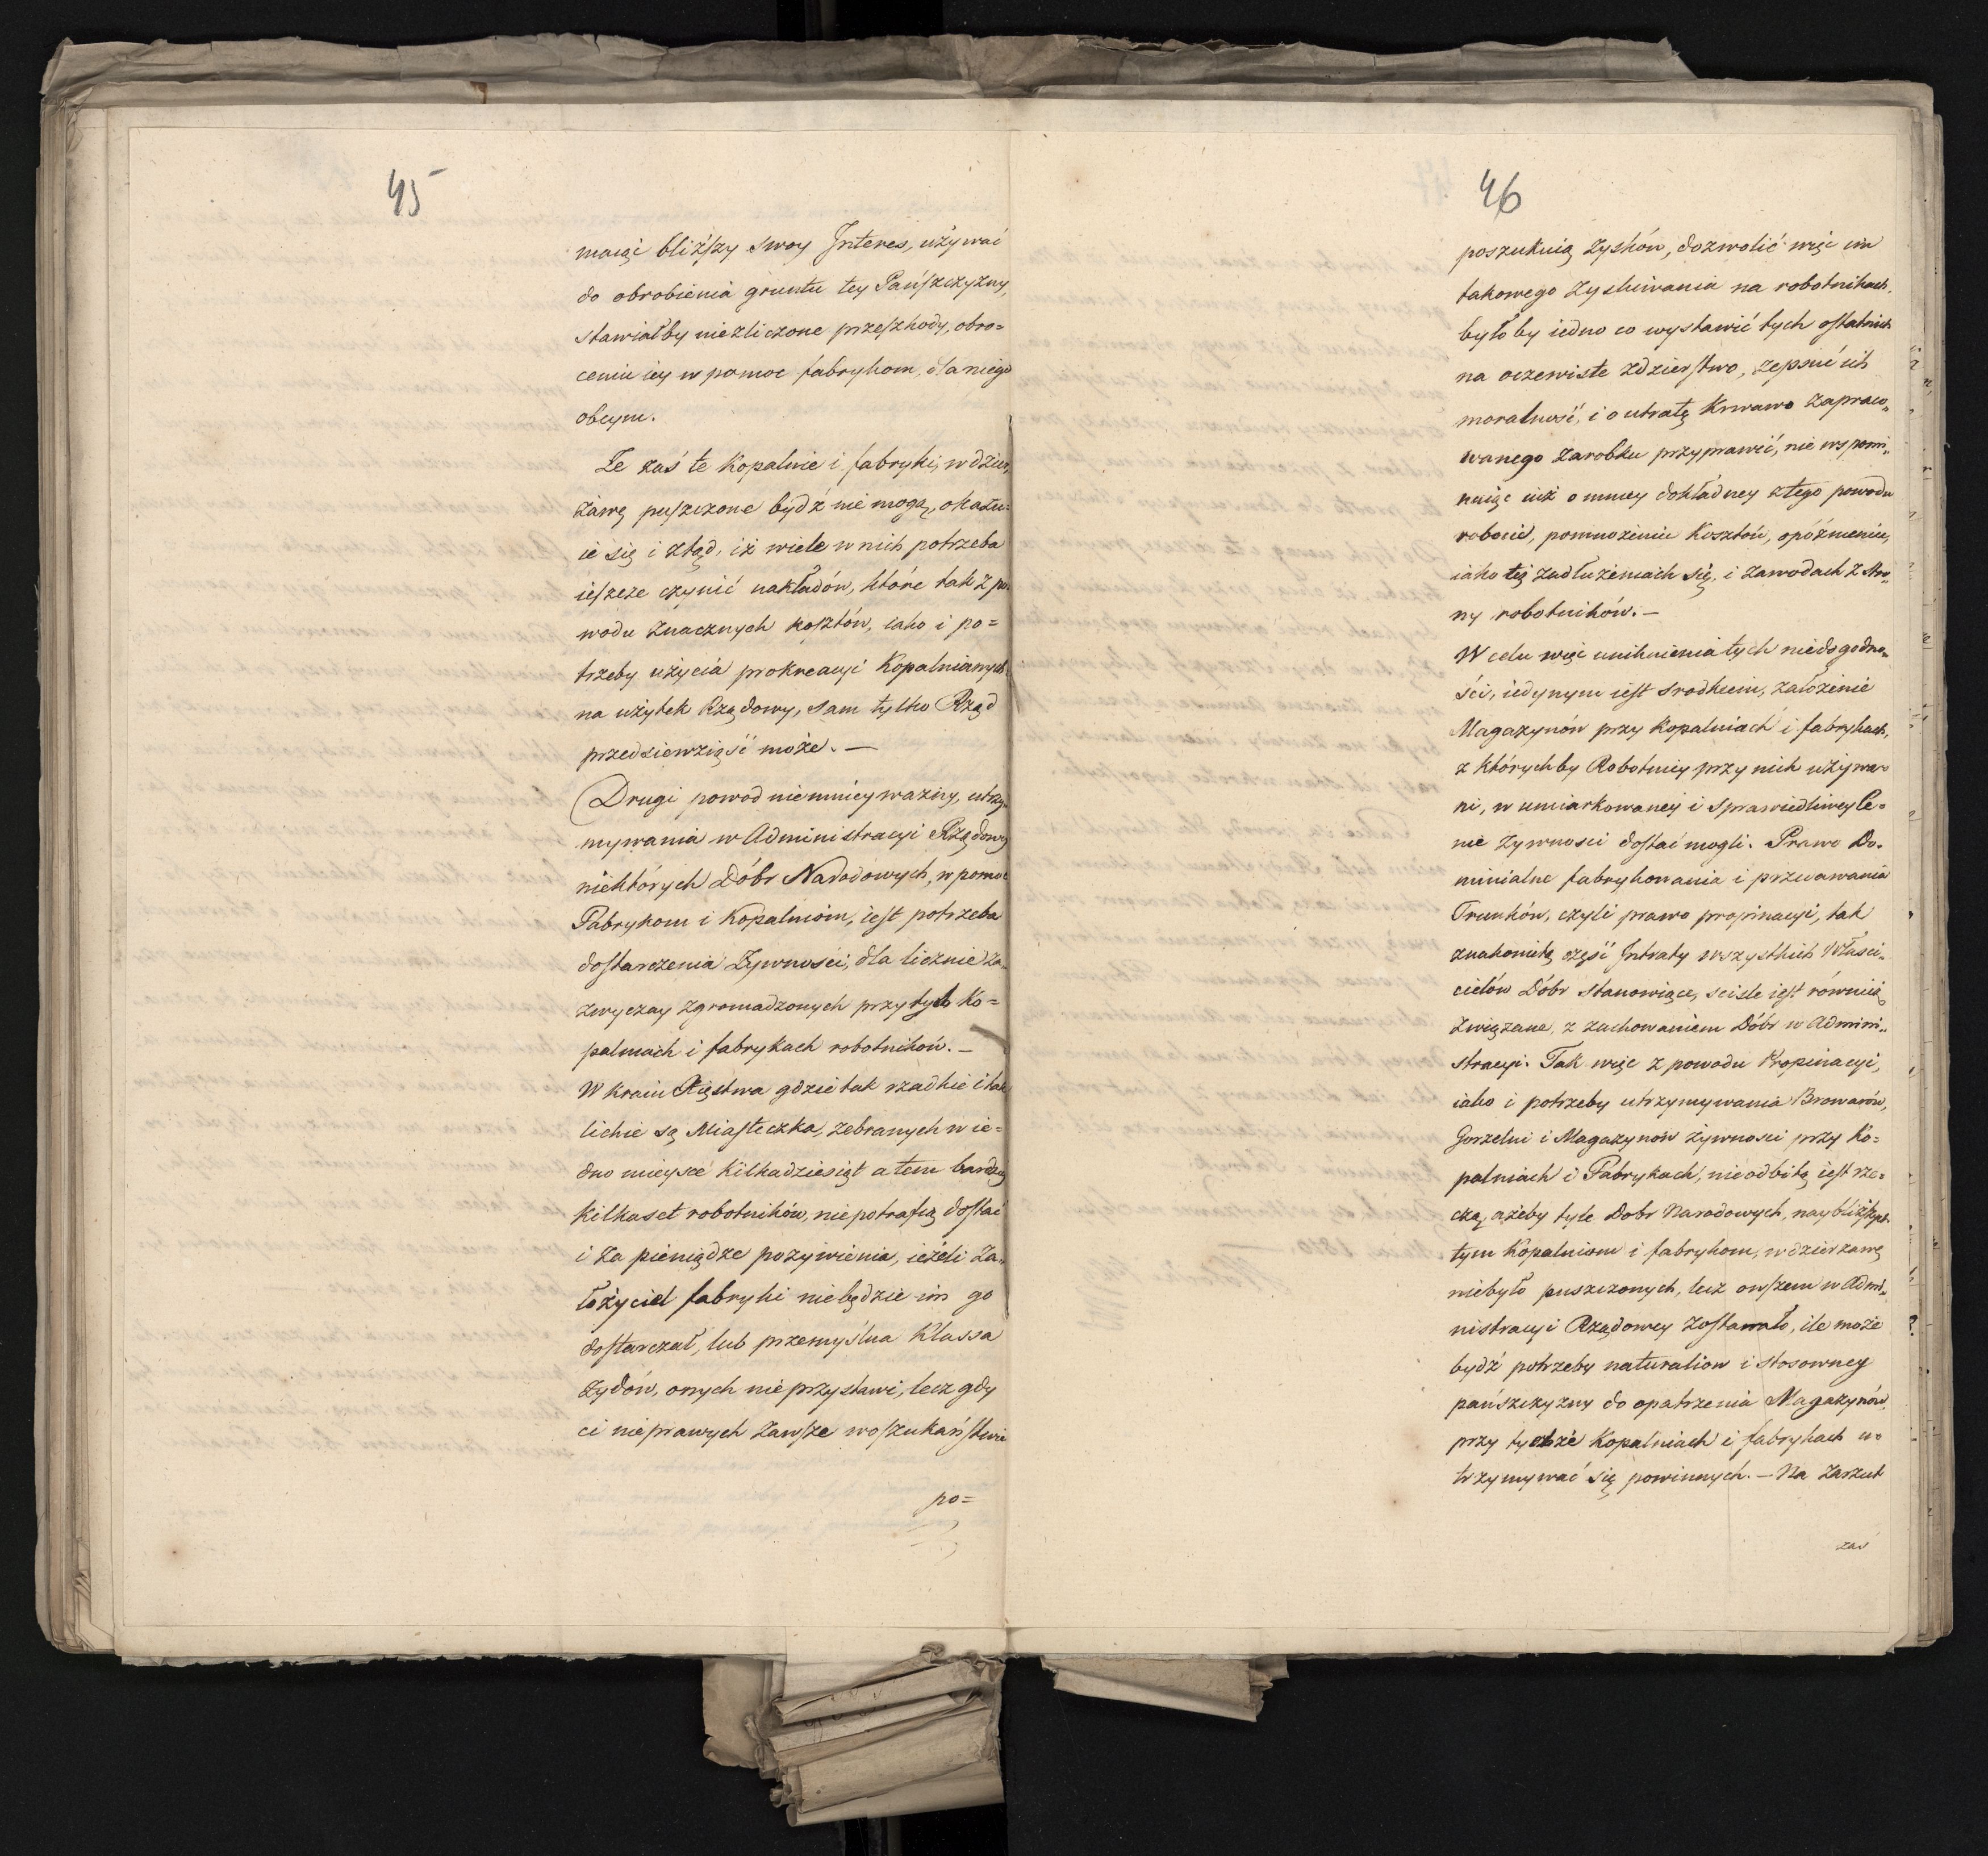 45
maiąc bliższy swoy Interes, używać
do obrobienia gruntu tey Pańszczyzny,
stawiałby niezliczone przeszkody, obro=
ceniu iey w pomoc fabrykom, dla niego
obcym.
Ze zaś te Kopalnie i fabryki, w dzier„
żawę puszczone bydź nie mogą, okazu=
ie się i ztąd, iż wiele w nich potrzeba
ieszcze czynić nakładów, które tak z po„
wodu znacznych kosztów, iako i po=
trzeby użycia prokreacyi Kopalnianych
na użytek Rządowy, sam tylko Rząd
przedsiewziąść może. —
Drugi powod niemniey ważny, utrzy„
mywania w Administracyi Rządowey
niektórych Dóbr Narodowych, w pomoc
Fabrykom i Kopalniom, iest potrzeba
dostarczenia Żywności, dla licznie za„
zwyczay zgromadzonych przy tych Ko=
palniach i fabrykach robotników. —
W kraiu Xięstwa gdzie tak rzadkie i tak
liche są Miasteczka, zebranych w ie=
dno mieysce kilkadziesiąt a tem bardziey
kilkaset robotników, niepotrafią dostać
i za pieniądze pożywienia, ieżeli za„
łożyciel fabryki niebędzie im go
dostarczał, lub przemyślna Klassa
żydów, onych nie przystawi, lecz gdy
ci nieprawych zawsze w oszukaństwie
po=
46
poszukuią zysków, dozwolić więc im
takowego zyskiwania na robotnikach,
było by iedno co wystawić tych ostatnich
na oczewiste zdzierstwo, zepsuć ich
moralność, i o utratę krwawo zapraco„
wanego zarobku przyprawić, nie wspomi„
naiąc iuż o mniey dokładney z tego powodu
robocie, pomnożeniu kosztów, opóźnieniu,
iako też zadłużeniach się, i zawodach z stro„
ny robotników. —
W celu więc uniknienia tych niedogodno„
ści, iedynym iest srodkiem, założenie
Magazynów przy Kopalniach i fabrykach,
z których by Robotnicy przy nich używa=
ni, w umiarkowaney i sprawiedliwey Ce=
nie żywnosci dostać mogli. Prawo Do=
minialne fabrykowania i przedawania
Trunków, czyli prawo propinacyi, tak
znakomitą część Intraty wszystkich Właści„
cielów Dóbr stanowiące, sciśle iest równie
związane, z zachowaniem Dóbr w Admini„
stracyi. Tak więc z powodu Propinacyi,
iako i potrzeby utrzymywania Browarów,
Gorzelni i Magazynów żywnosci przy Ko=
palniach i Fabrykach, nieodbitą iest rze=
czą, ażeby tyle Dobr Narodowych, naybliższych
tym Kopalniom i fabrykom, w dzierżawę
niebyło puszczonych, lecz owszem w Admi„
nistracyi Rządowey zostawało, ile może
bydź potrzeby naturaliow i stosowney
pańszczyzny do opatrzenia Magazynów
przy tychże Kopalniach i fabrykach u=
trzymywać się powinnych. — Na Zarzut
zaś